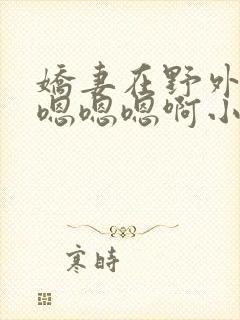 娇妻在野外
嗯嗯嗯啊小
寒时